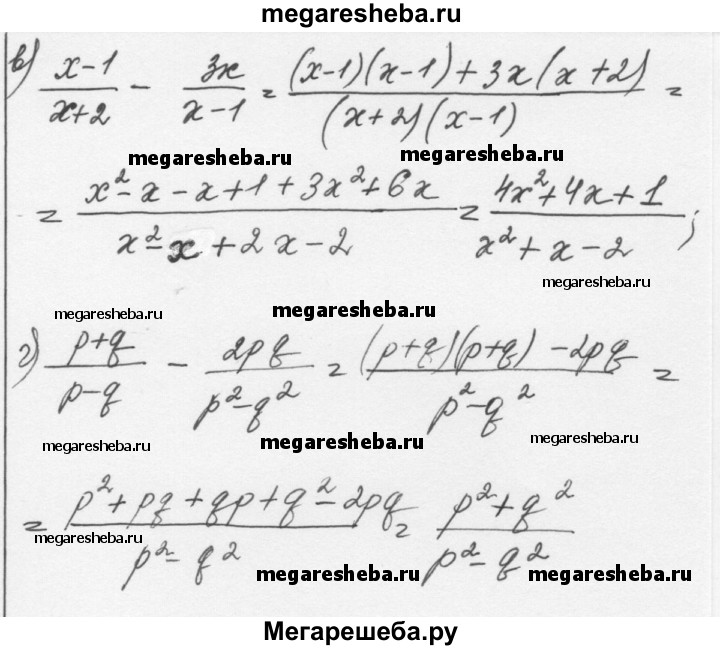 megaresheba.ru
в) (x-1)/(x+2) - 3x/(x-1) = ((x-1)(x-1)+3x(x+2))/((x+2)(x-1)) =
megaresheba.ru megaresheba.ru
= (x²-x-x+1+3x²+6x)/(x²-x+2x-2) = (4x²+4x+1)/(x²+x-2);
megaresheba.ru
megaresheba.ru megaresheba.ru
г) (p+q)/(p-q) - 2pq/(p²-q²) = ((p+q)(p+q)-2pq)/(p²-q²) =
megaresheba.ru megaresheba.ru megaresheba.ru
= (p²+pq+qp+q²-2pq)/(p²-q²) = (p²+q²)/(p²-q²)
megaresheba.ru megaresheba.ru megaresheba.ru
Мегарешеба.ру